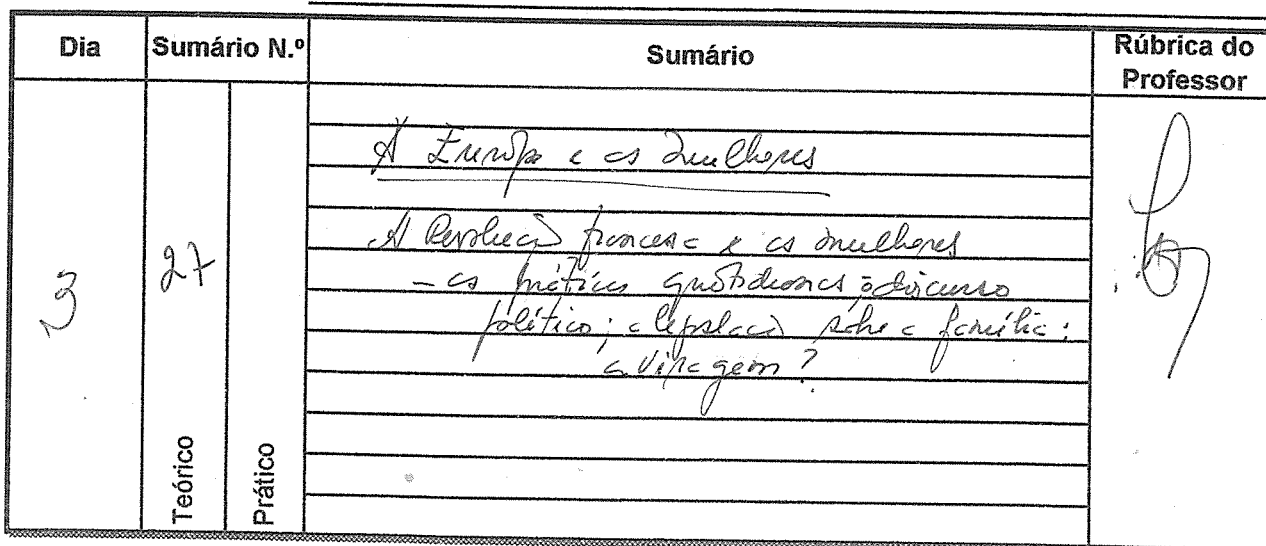 Dia Sumário N.º Sumário Rúbrica do Professor
A Europa e as mulheres
A Revolução francesa e as mulheres
3 27 - as práticas quotidianas; o discurso
político; a legislação sobre a família:
a viragem?
Teórico Prático